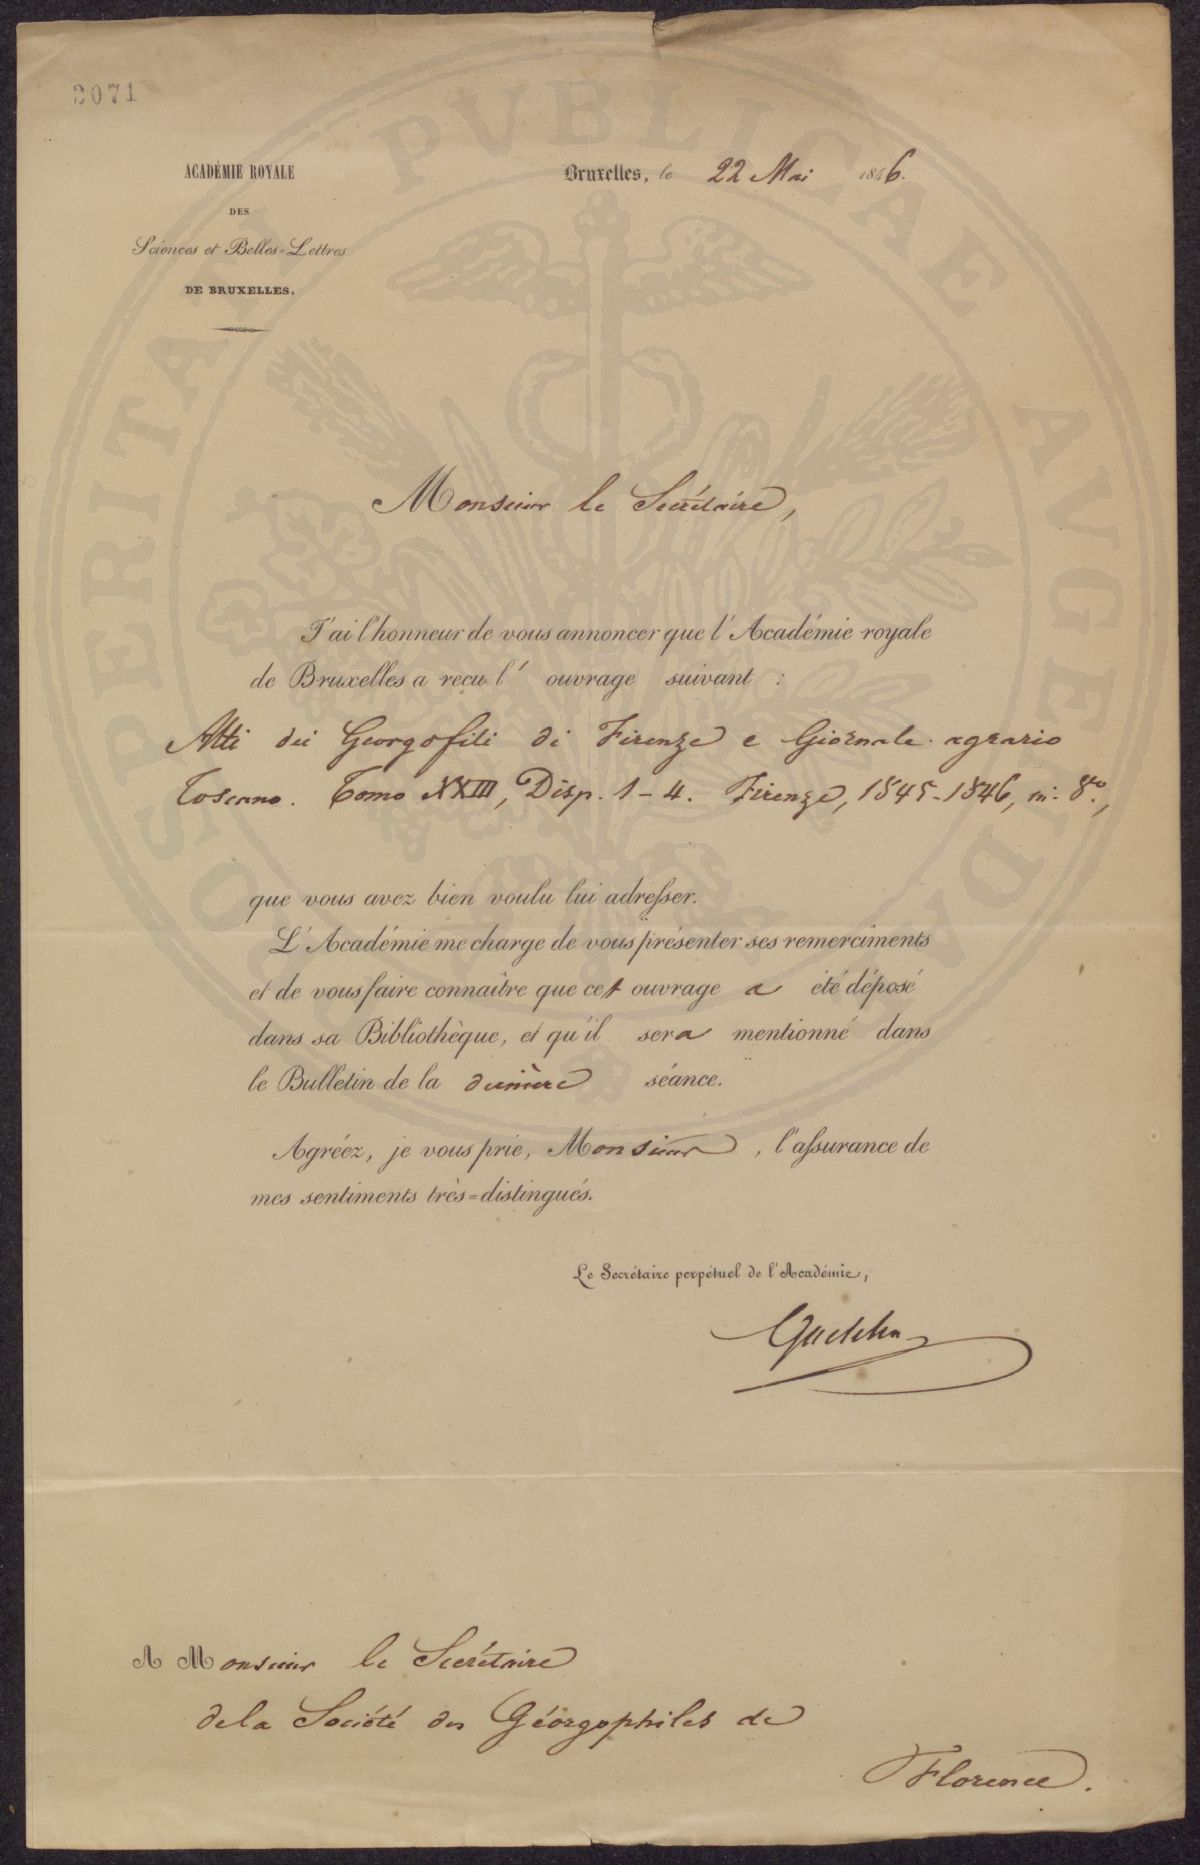 2071
ACADÉMIE ROYALE
DES
Sciences et Belles-Lettres
DE BRUXELLES.
Bruxelles, le 22 Mai 1846.
Monsieur le Secrétaire,
J'ai l'honneur de vous annoncer que l'Académie royale
de Bruxelles a reçu l' ouvrage suivant :
Atti dei Georgofili di Firenze e Giornale agrario
Toscano. Tomo XXIII, Disp. 1-4. Firenze, 1845-1846, in-8°,
que vous avez bien voulu lui adresser.
L'Académie me charge de vous présenter ses remercîments
et de vous faire connaître que cet ouvrage a été déposé
dans sa Bibliothèque, et qu'il sera mentionné dans
le Bulletin de la dernière séance.
Agréez, je vous prie, Monsieur, l'assurance de
mes sentiments très-distingués.
Le Secrétaire perpétuel de l'Académie,
Quetelet
A Monsieur le Secrétaire
de la Société des Géorgophiles de
Florence.
PROSPERITATI PVBLICAE AVGENDAE